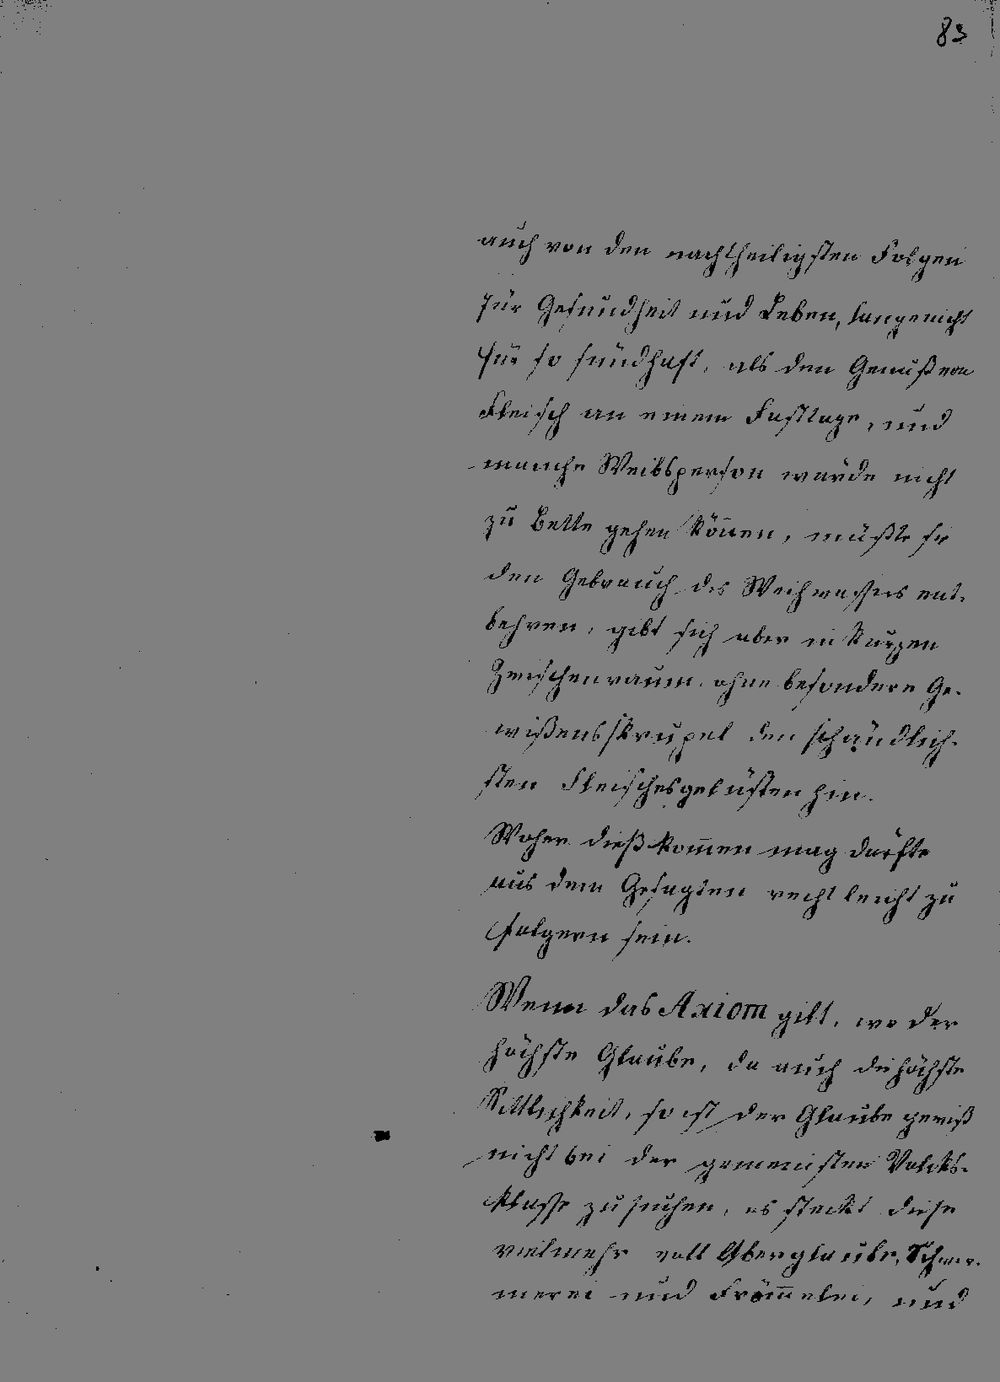 83
auch von den nachtheiligsten Folgen
für Gesundheit und Leben, lange nicht
für so sündhaft, als den Genuß von
Fleisch an einem Fasttage, und
manche Weibsperson würde nicht
zu Bette gehen können, müßte sie
den Gebrauch des Weihwassers ent-
behren, gibt sich aber in kurzen
Zwischenraum ohne besondere Ge-
wißensskrupel den schändlich-
sten Fleischesgelüsten hin.
Woher dieß kommen mag dürfte
aus dem Gesagten recht leicht zu
folgern sein.
Wenn das Axiom gilt, wo der
höchste Glaube, da auch die höchste
Sittlichkeit, so ist der Glaube gewiß
nicht bei der gemeinsten Volks-
klasse zu suchen, es steckt diese
vielmehr voll Aberglaube, Schwer-
merei und Frömmelei, und